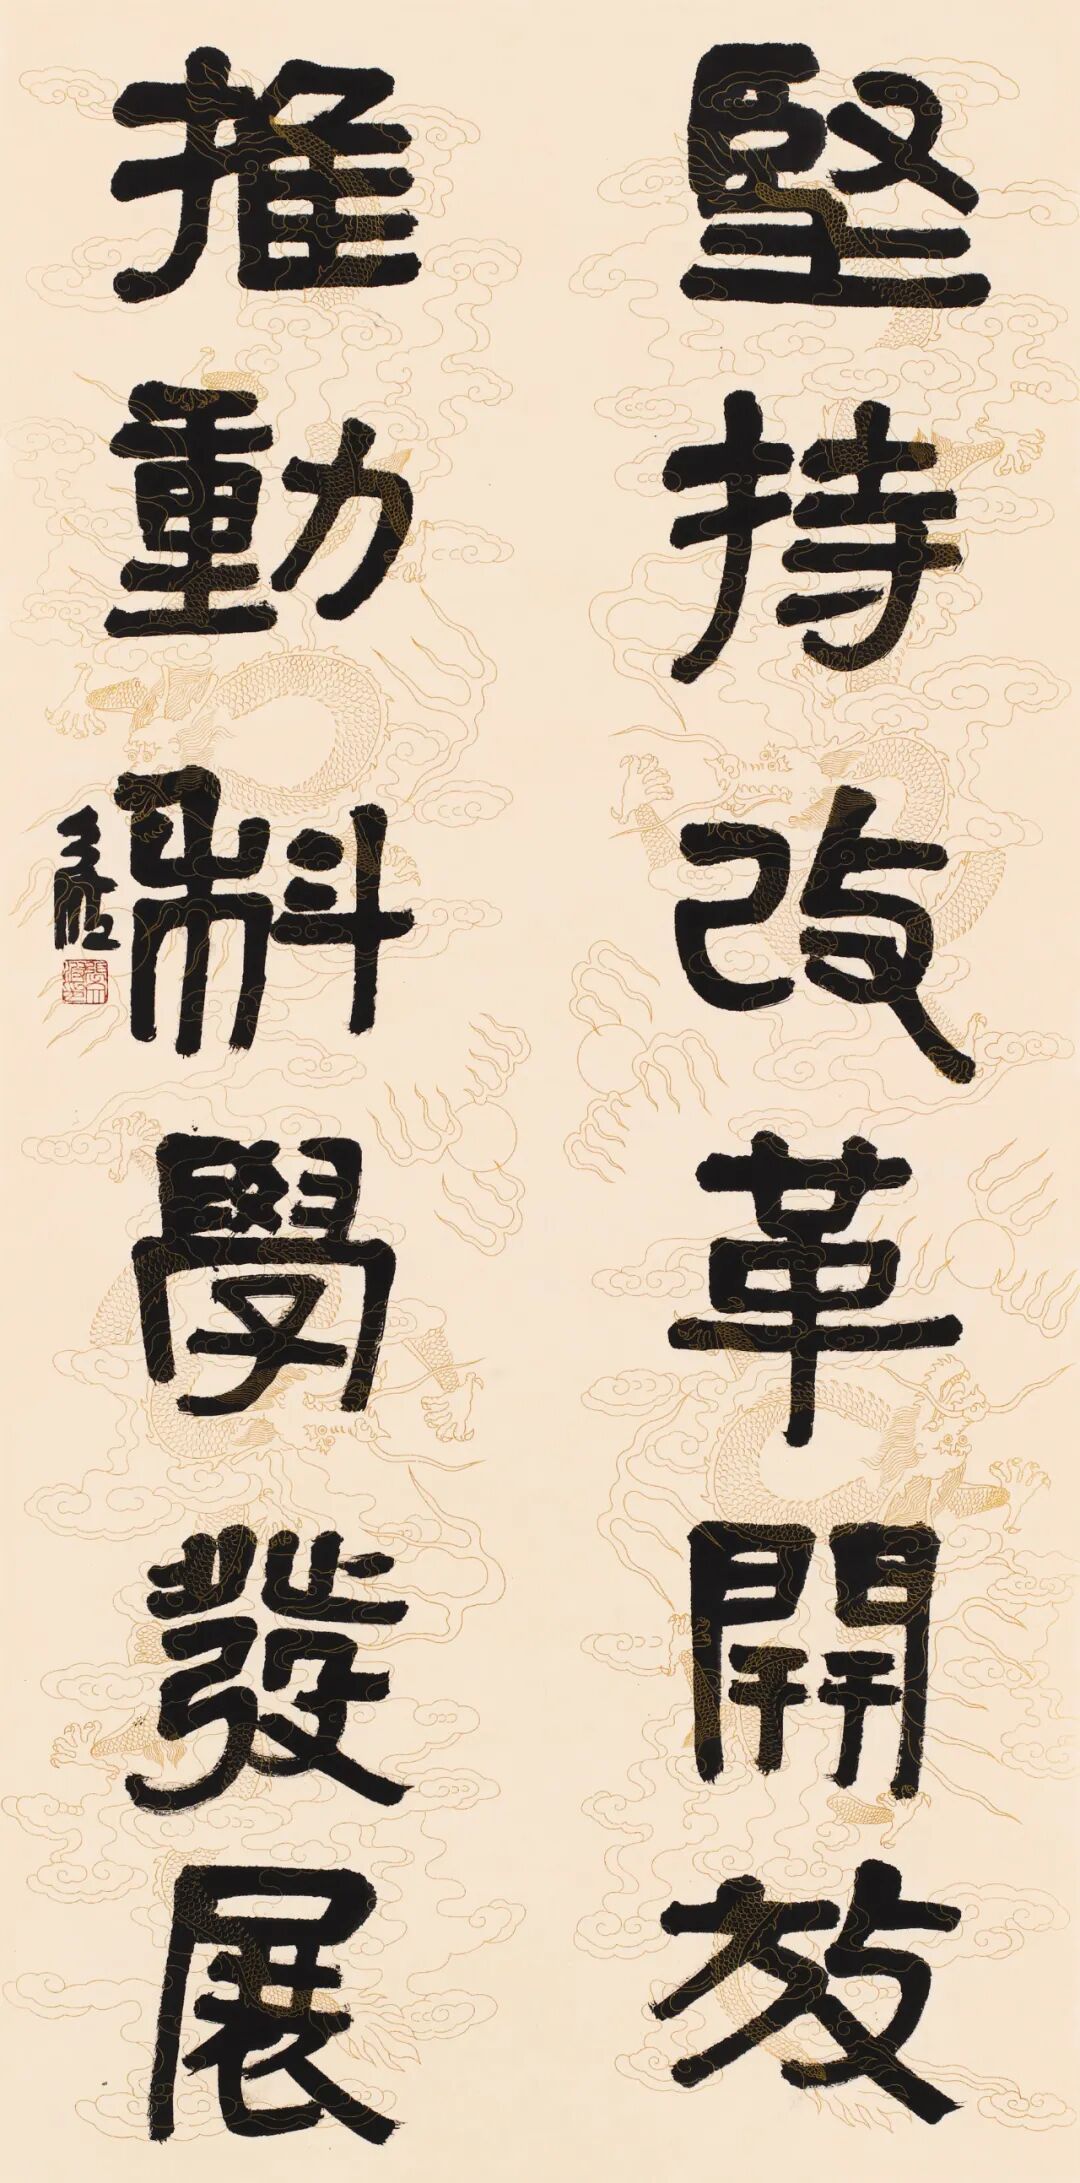 堅持改革開放
推動科學發展